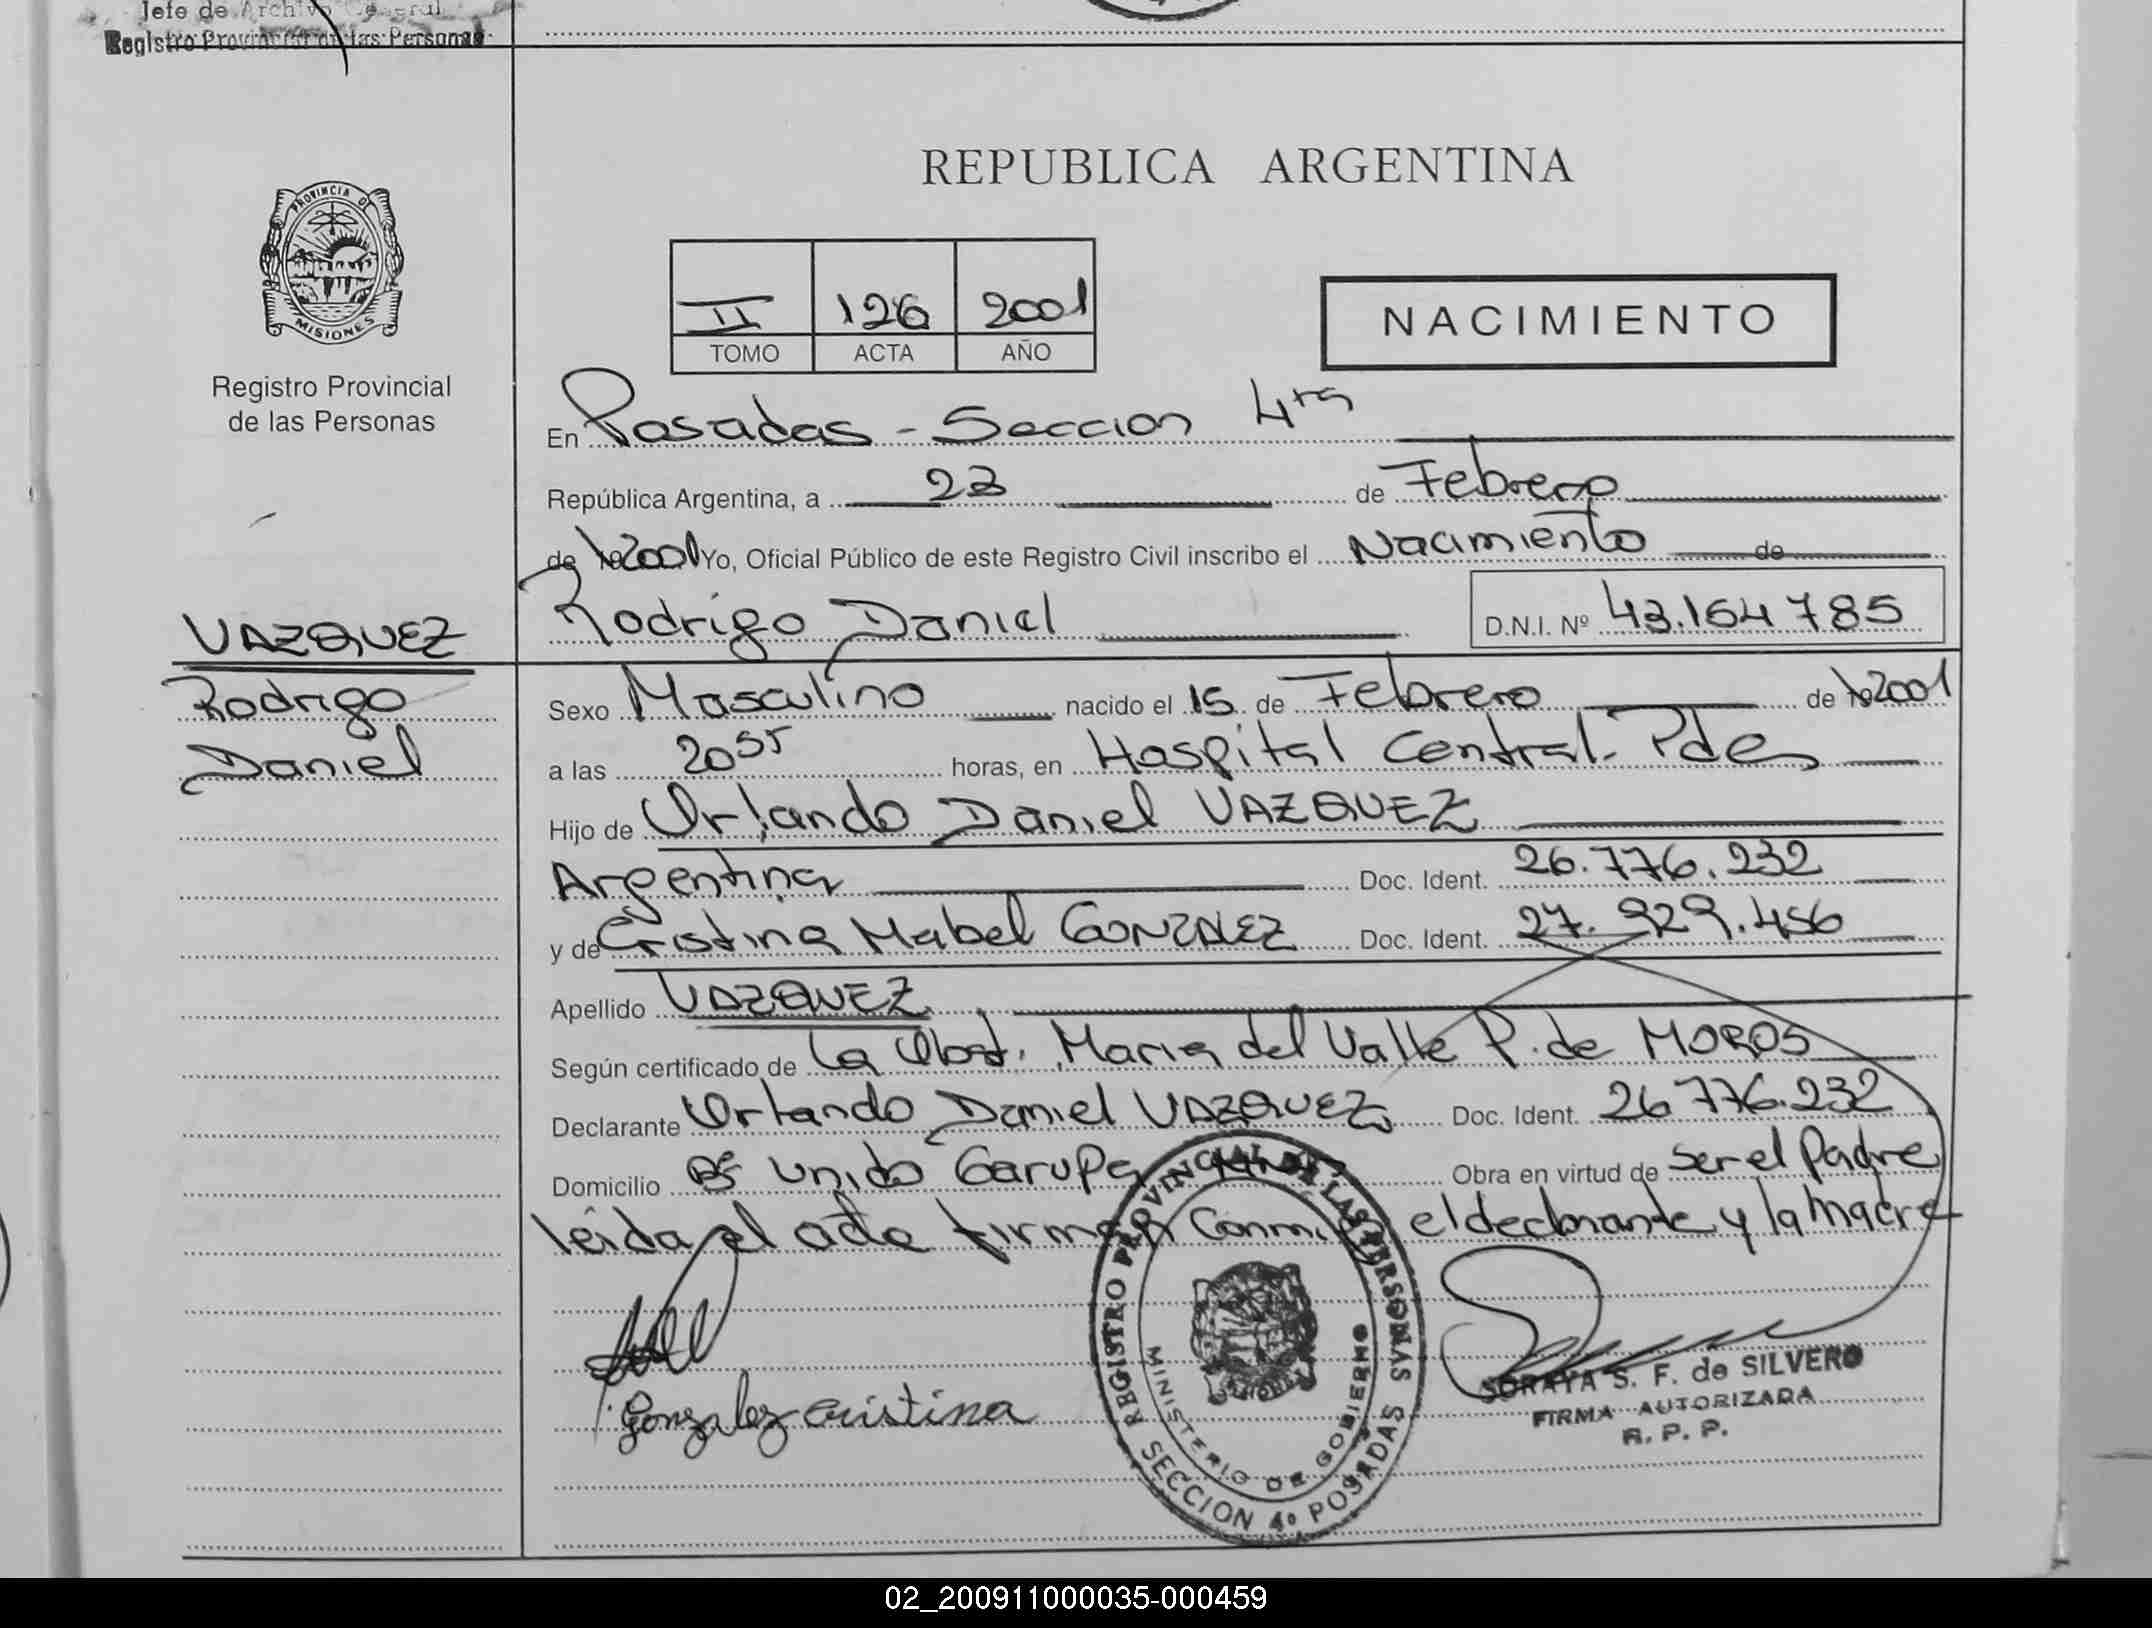 Jefe de Archivo General
Registro Provincial de las Personas
REPUBLICA ARGENTINA
PROVINCIA DE
MISIONES
Registro Provincial
de las Personas
II 126 2001
TOMO ACTA AÑO
NACIMIENTO
En Posadas - Seccion 4ta
República Argentina, a 23 de Febrero
de 2001 Yo, Oficial Público de este Registro Civil inscribo el Nacimiento de
Rodrigo Daniel D.N.I. Nº 43.164785
VAZQUEZ
Rodrigo
Daniel
Sexo Masculino nacido el 15 de Febrero de 2001
a las 20 55 horas, en Hospital Central. Pdas
Hijo de Orlando Daniel VAZQUEZ
Argentina Doc. Ident. 26.776.232
y de Cristina Mabel GONZALEZ Doc. Ident. 27.929.456
Apellido VAZQUEZ
Según certificado de La Obst. Maria del Valle P. de MOROS
Declarante Orlando Daniel VAZQUEZ Doc. Ident. 26776.232
Domicilio Bº Unido Garupa Obra en virtud de Ser el Padre
leida el acta firman Conmigo el declarante y la Madre
Gonzalez Cristina
REGISTRO PROVINCIAL DE LAS PERSONAS
MINISTERIO DE GOBIERNO
SECCION 4º POSADAS
SORAYA S. F. de SILVERO
FIRMA AUTORIZADA
R. P. P.
02_200911000035-000459